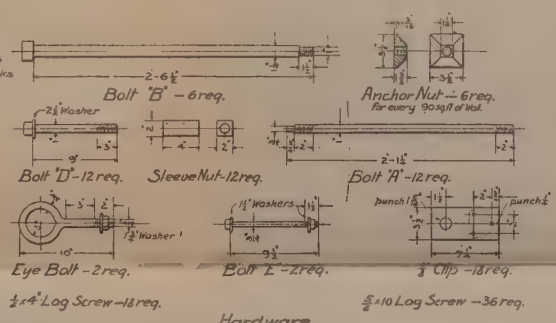 ks
1½"
2'-6½"
Bolt "B" — 6 req.
3½"
1½"
3½"
Anchor Nut — 6 req.
For every 90 sq.ft of Wall.
2½" Washer
3"
9"
Bolt "D" — 12 req.
2"
4"
2"
Sleeve Nut — 12 req.
2"
2"
2'-1½"
Bolt "A" — 12 req.
3"
2"
Washer
10"
Eye Bolt — 2 req.
1½" Washers
1½"
9½"
Bolt "E" — 2 req.
punch
1½"
2"
punch
3½"
7½"
Clip — 18 req.
½ x 4" Lag Screw — 18 req.
⅝ x 10 Lag Screw — 36 req.
Hardware